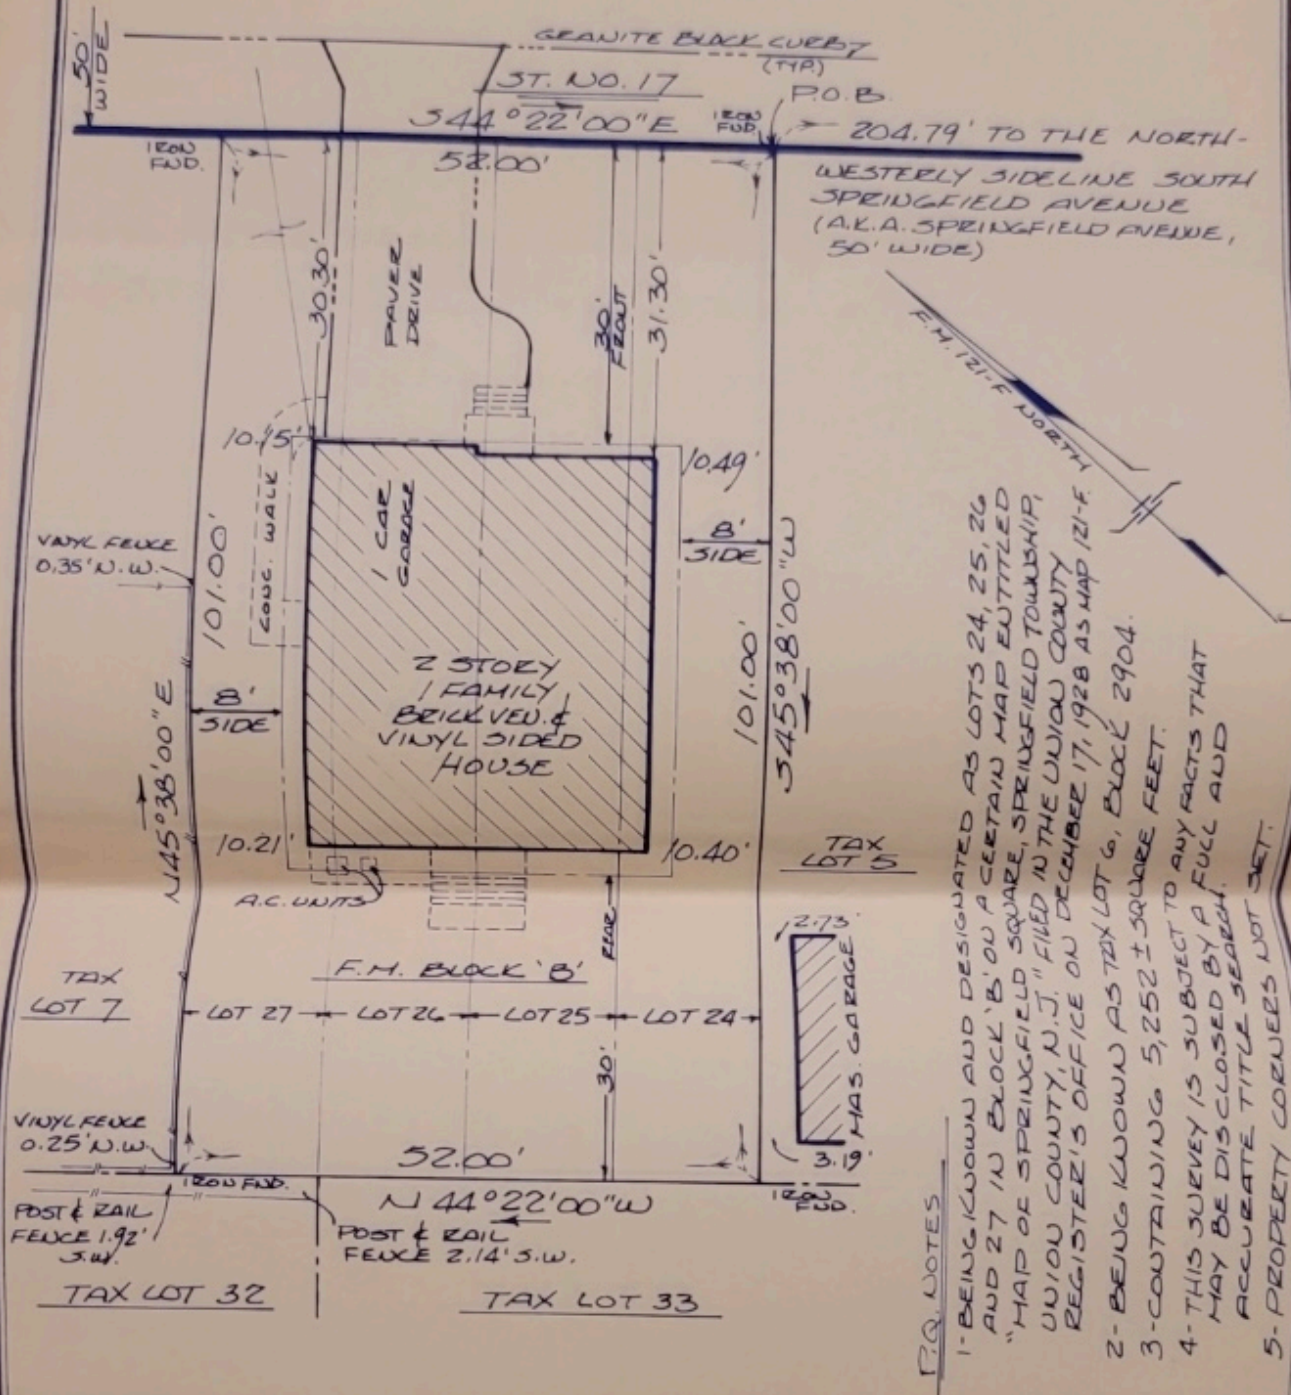 50'
WIDE
GRANITE BLOCK CURB
(TYP.)
ST. NO. 17
P.O.B.
S44°22'00"E
IRON
FND.
IRON
FND.
204.79' TO THE NORTH-
WESTERLY SIDELINE SOUTH
SPRINGFIELD AVENUE
(A.K.A. SPRINGFIELD AVENUE,
50' WIDE)
52.00'
30.30'
PAVER
DRIVE
30'
FRONT
31.30'
F.M. 121-F NORTH
10.15'
10.49'
CONC. WALK
1 CAR
GARAGE
8'
SIDE
VINYL FENCE
0.35' N.W.
101.00'
N45°38'00"E
8'
SIDE
2 STORY
1 FAMILY
BRICK VEN. &
VINYL SIDED
HOUSE
101.00'
S45°38'00"W
10.21'
10.40'
TAX
LOT 5
A.C. UNITS
REAR
30'
2.73'
MAS. GARAGE
3.19'
F.M. BLOCK 'B'
TAX
LOT 7
LOT 27
LOT 26
LOT 25
LOT 24
VINYL FENCE
0.25' N.W.
52.00'
IRON FND.
N44°22'00"W
IRON
FND.
POST & RAIL
FENCE 1.92'
S.W.
POST & RAIL
FENCE 2.14' S.W.
TAX LOT 32
TAX LOT 33
P.Q. NOTES
1- BEING KNOWN AND DESIGNATED AS LOTS 24, 25, 26
AND 27 IN BLOCK 'B' ON A CERTAIN MAP ENTITLED
"MAP OF SPRINGFIELD SQUARE, SPRINGFIELD TOWNSHIP,
UNION COUNTY, N.J." FILED IN THE UNION COUNTY
REGISTER'S OFFICE ON DECEMBER 17, 1928 AS MAP 121-F.
2- BEING KNOWN AS TAX LOT 6, BLOCK 2904.
3- CONTAINING 5,252 ± SQUARE FEET.
4- THIS SURVEY IS SUBJECT TO ANY FACTS THAT
MAY BE DISCLOSED BY A FULL AND
ACCURATE TITLE SEARCH.
5- PROPERTY CORNERS NOT SET.